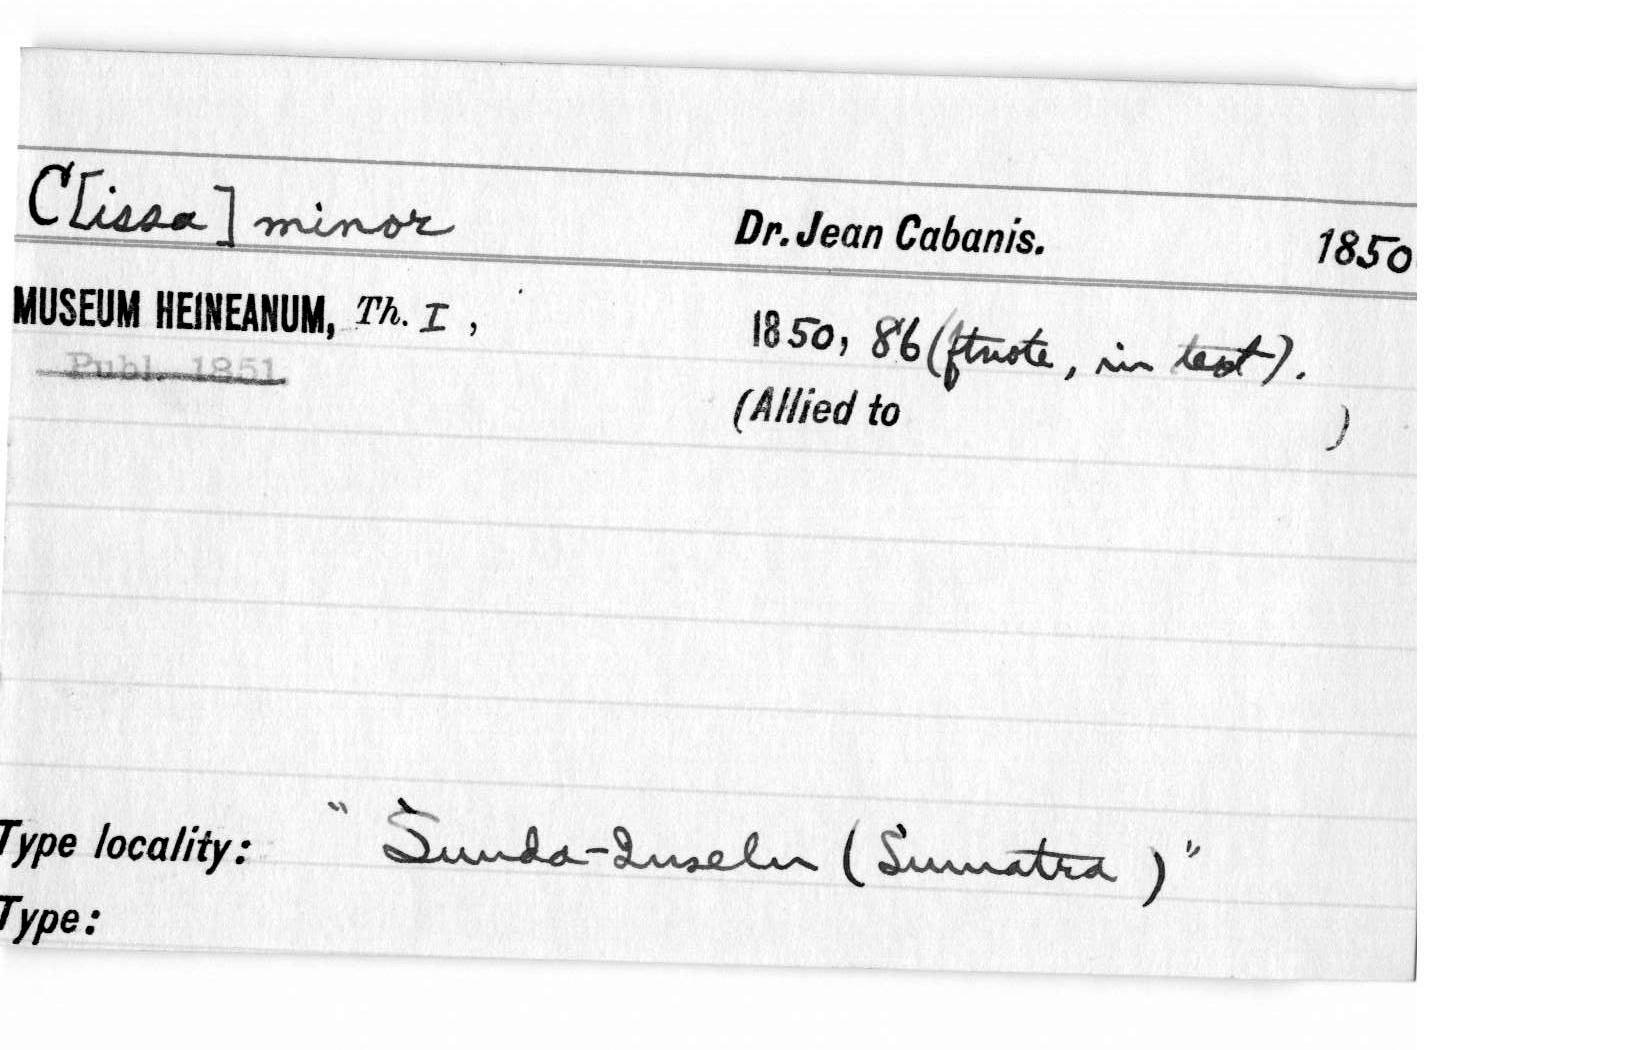 C[issa] minor Dr. Jean Cabanis. 1850
MUSEUM HEINEANUM, Th. I, 1850, 86 (ftnote, in text).
Publ. 1851
(Allied to )
Type locality: "Sunda-Inseln (Sumatra)"
Type: